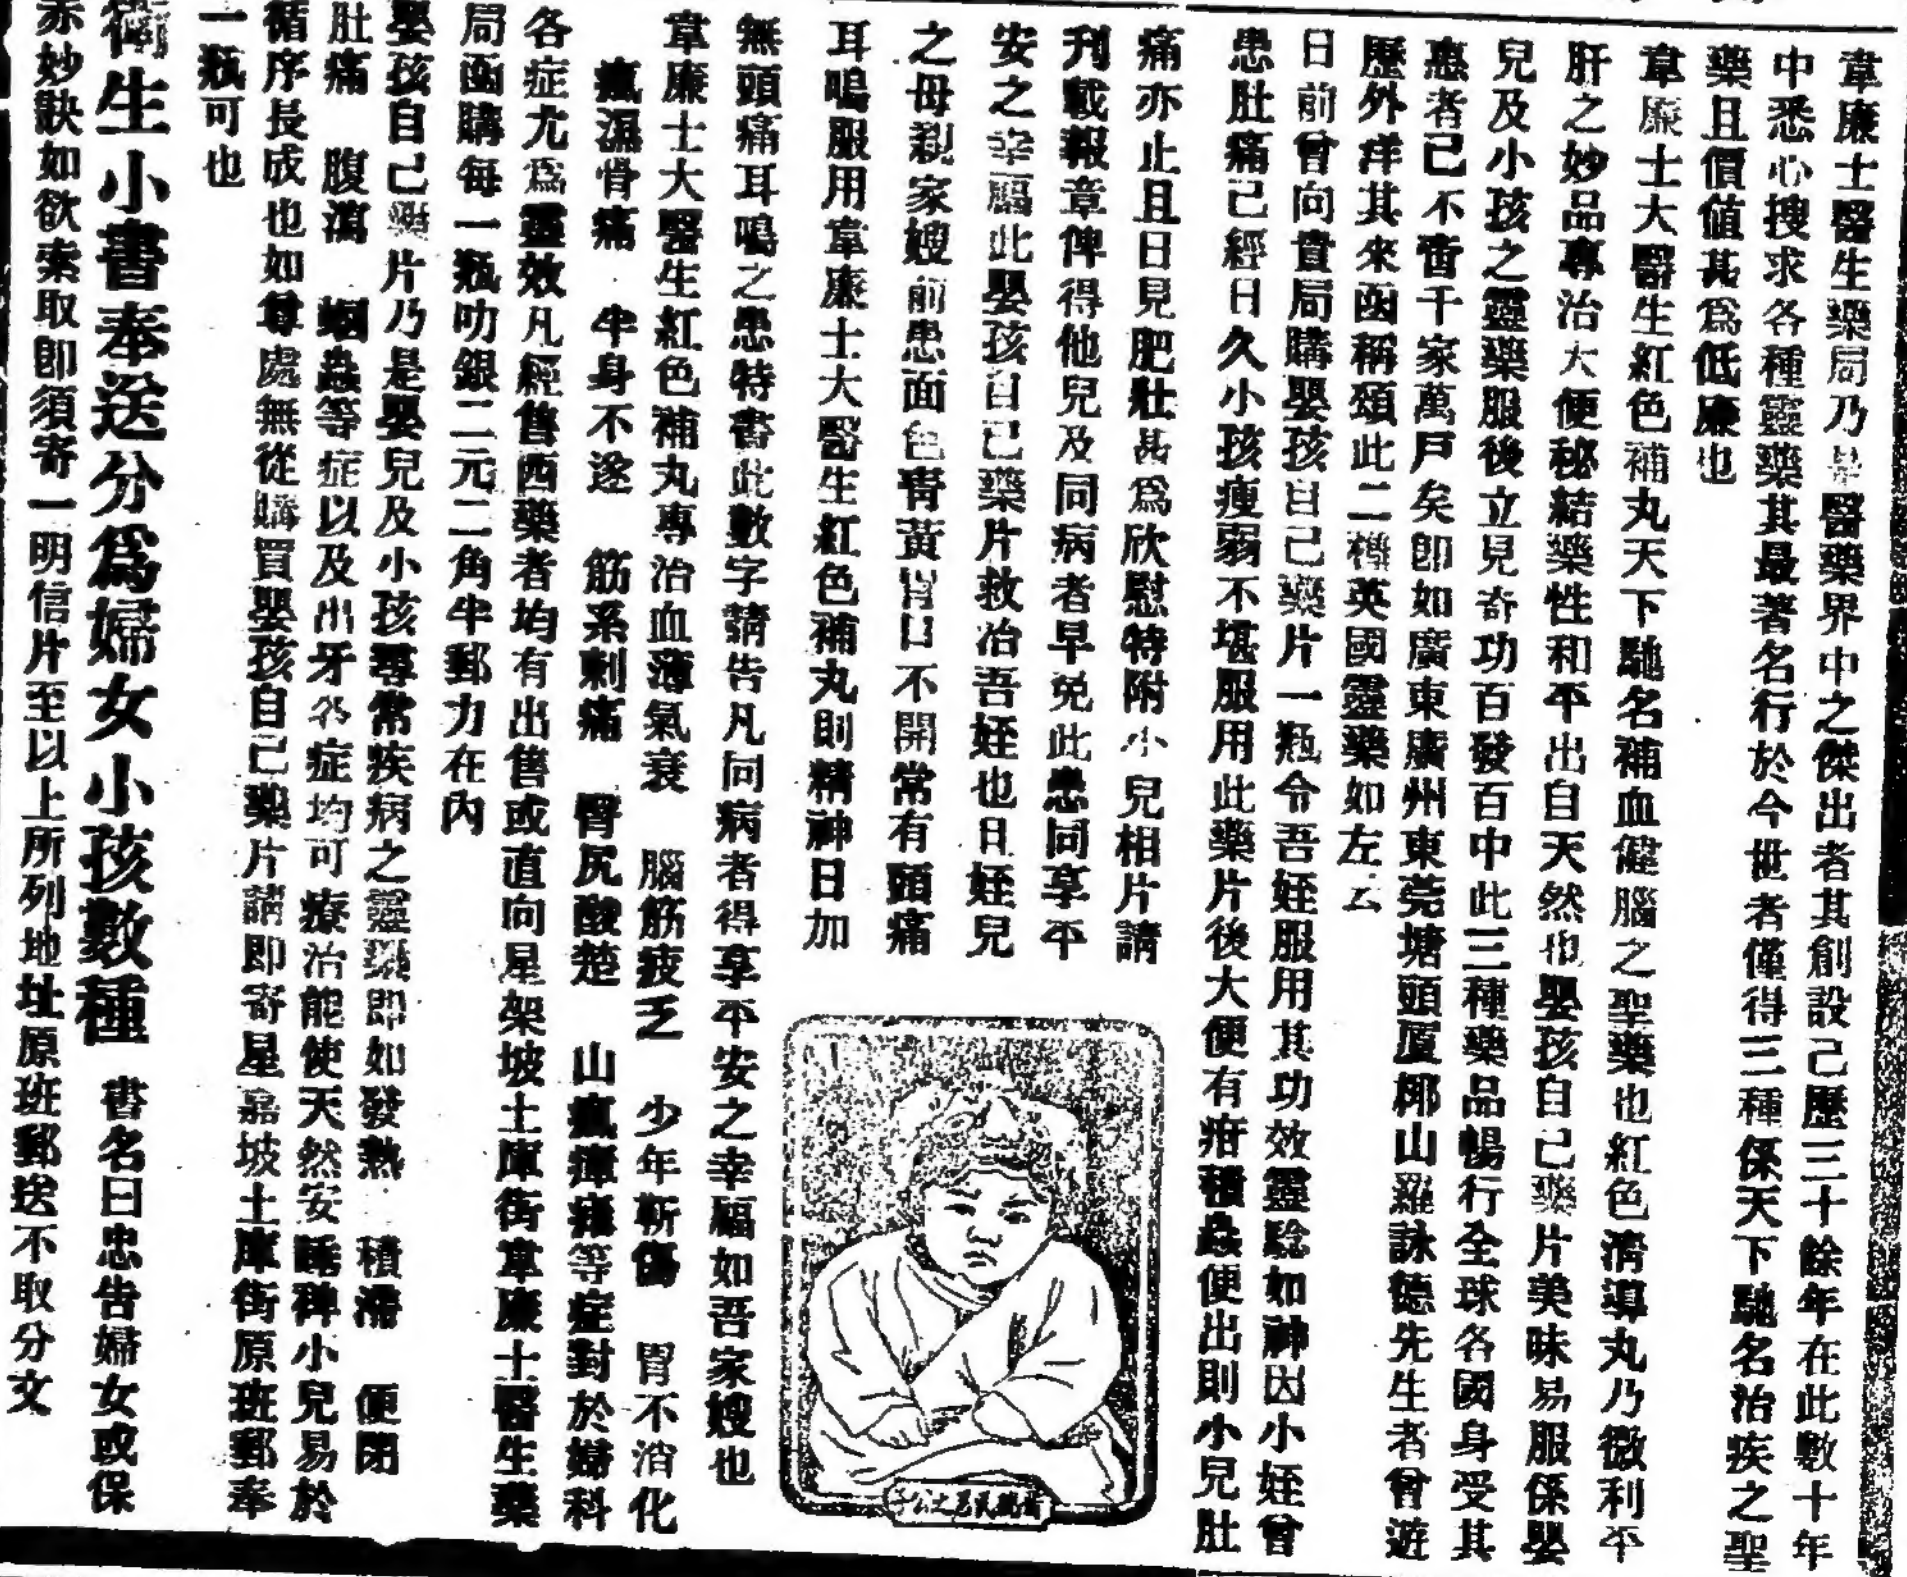 韋廉士醫生藥局乃是醫藥界中之傑出者其創設己歷三十餘年在此數十年
中悉心搜求各種靈藥其最著名行於今世者僅得三種係天下馳名治疾之聖
藥且價值甚爲低廉也
韋廉士大醫生紅色補丸天下馳名補血健腦之聖藥也紅色清導丸乃微利平
肝之妙品專治大便秘結藥性和平出自天然也嬰孩自己藥片美味易服係嬰
兒及小孩之靈藥服後立見奇功百發百中此三種藥品暢行全球各國身受其
惠者己不啻千家萬戶矣卽如廣東廣州東莞塘頭厦鄉山羅詠德先生者曾遊
歷外洋其來函稱頌此二種英國靈藥如左云
日前曾向貴局購嬰孩自己藥片一瓶令吾姪服用其功效靈驗如神因小姪曾
患肚痛己經日久小孩瘦弱不堪服用此藥片後大便有疳積蟲便出則小兒肚
痛亦止且日見肥壯甚爲欣慰特附小兒相片請
刋載報章俾得他兒及同病者早免此患同享平
安之幸福此嬰孩自己藥片救治吾姪也且姪兒
之母親家嫂前患面色靑黃胃口不開常有頭痛
耳鳴服用韋廉士大醫生紅色補丸則精神日加
無頭痛耳鳴之患特書此數字請告凡同病者得享平安之幸福如吾家嫂也
韋廉士大醫生紅色補丸專治血薄氣衰 腦筋疲乏 少年斲傷 胃不消化
瘋濕骨痛 半身不遂 筋系刺痛 臀尻酸楚 山嵐瘴癘等症對於婦科
各症尤爲靈效凡經售西藥者均有出售或直向星架坡土庫街韋廉士醫生藥
局函購每一瓶叻銀二元二角半郵力在內
嬰孩自己藥片乃是嬰兒及小孩尋常疾病之靈藥即如發熱 積滯 便閉
肚痛 腹瀉 蛔蟲等症以及出牙各症均可療治能使天然安睡俾小兒易於
循序長成也如尊處無從購買嬰孩自己藥片請即寄星嘉坡土庫街原班郵奉
一瓶可也
衛生小書奉送分爲婦女小孩數種 書名曰忠告婦女或保
赤妙訣如欲索取卽須寄一明信片至以上所列地址原班郵送不取分文